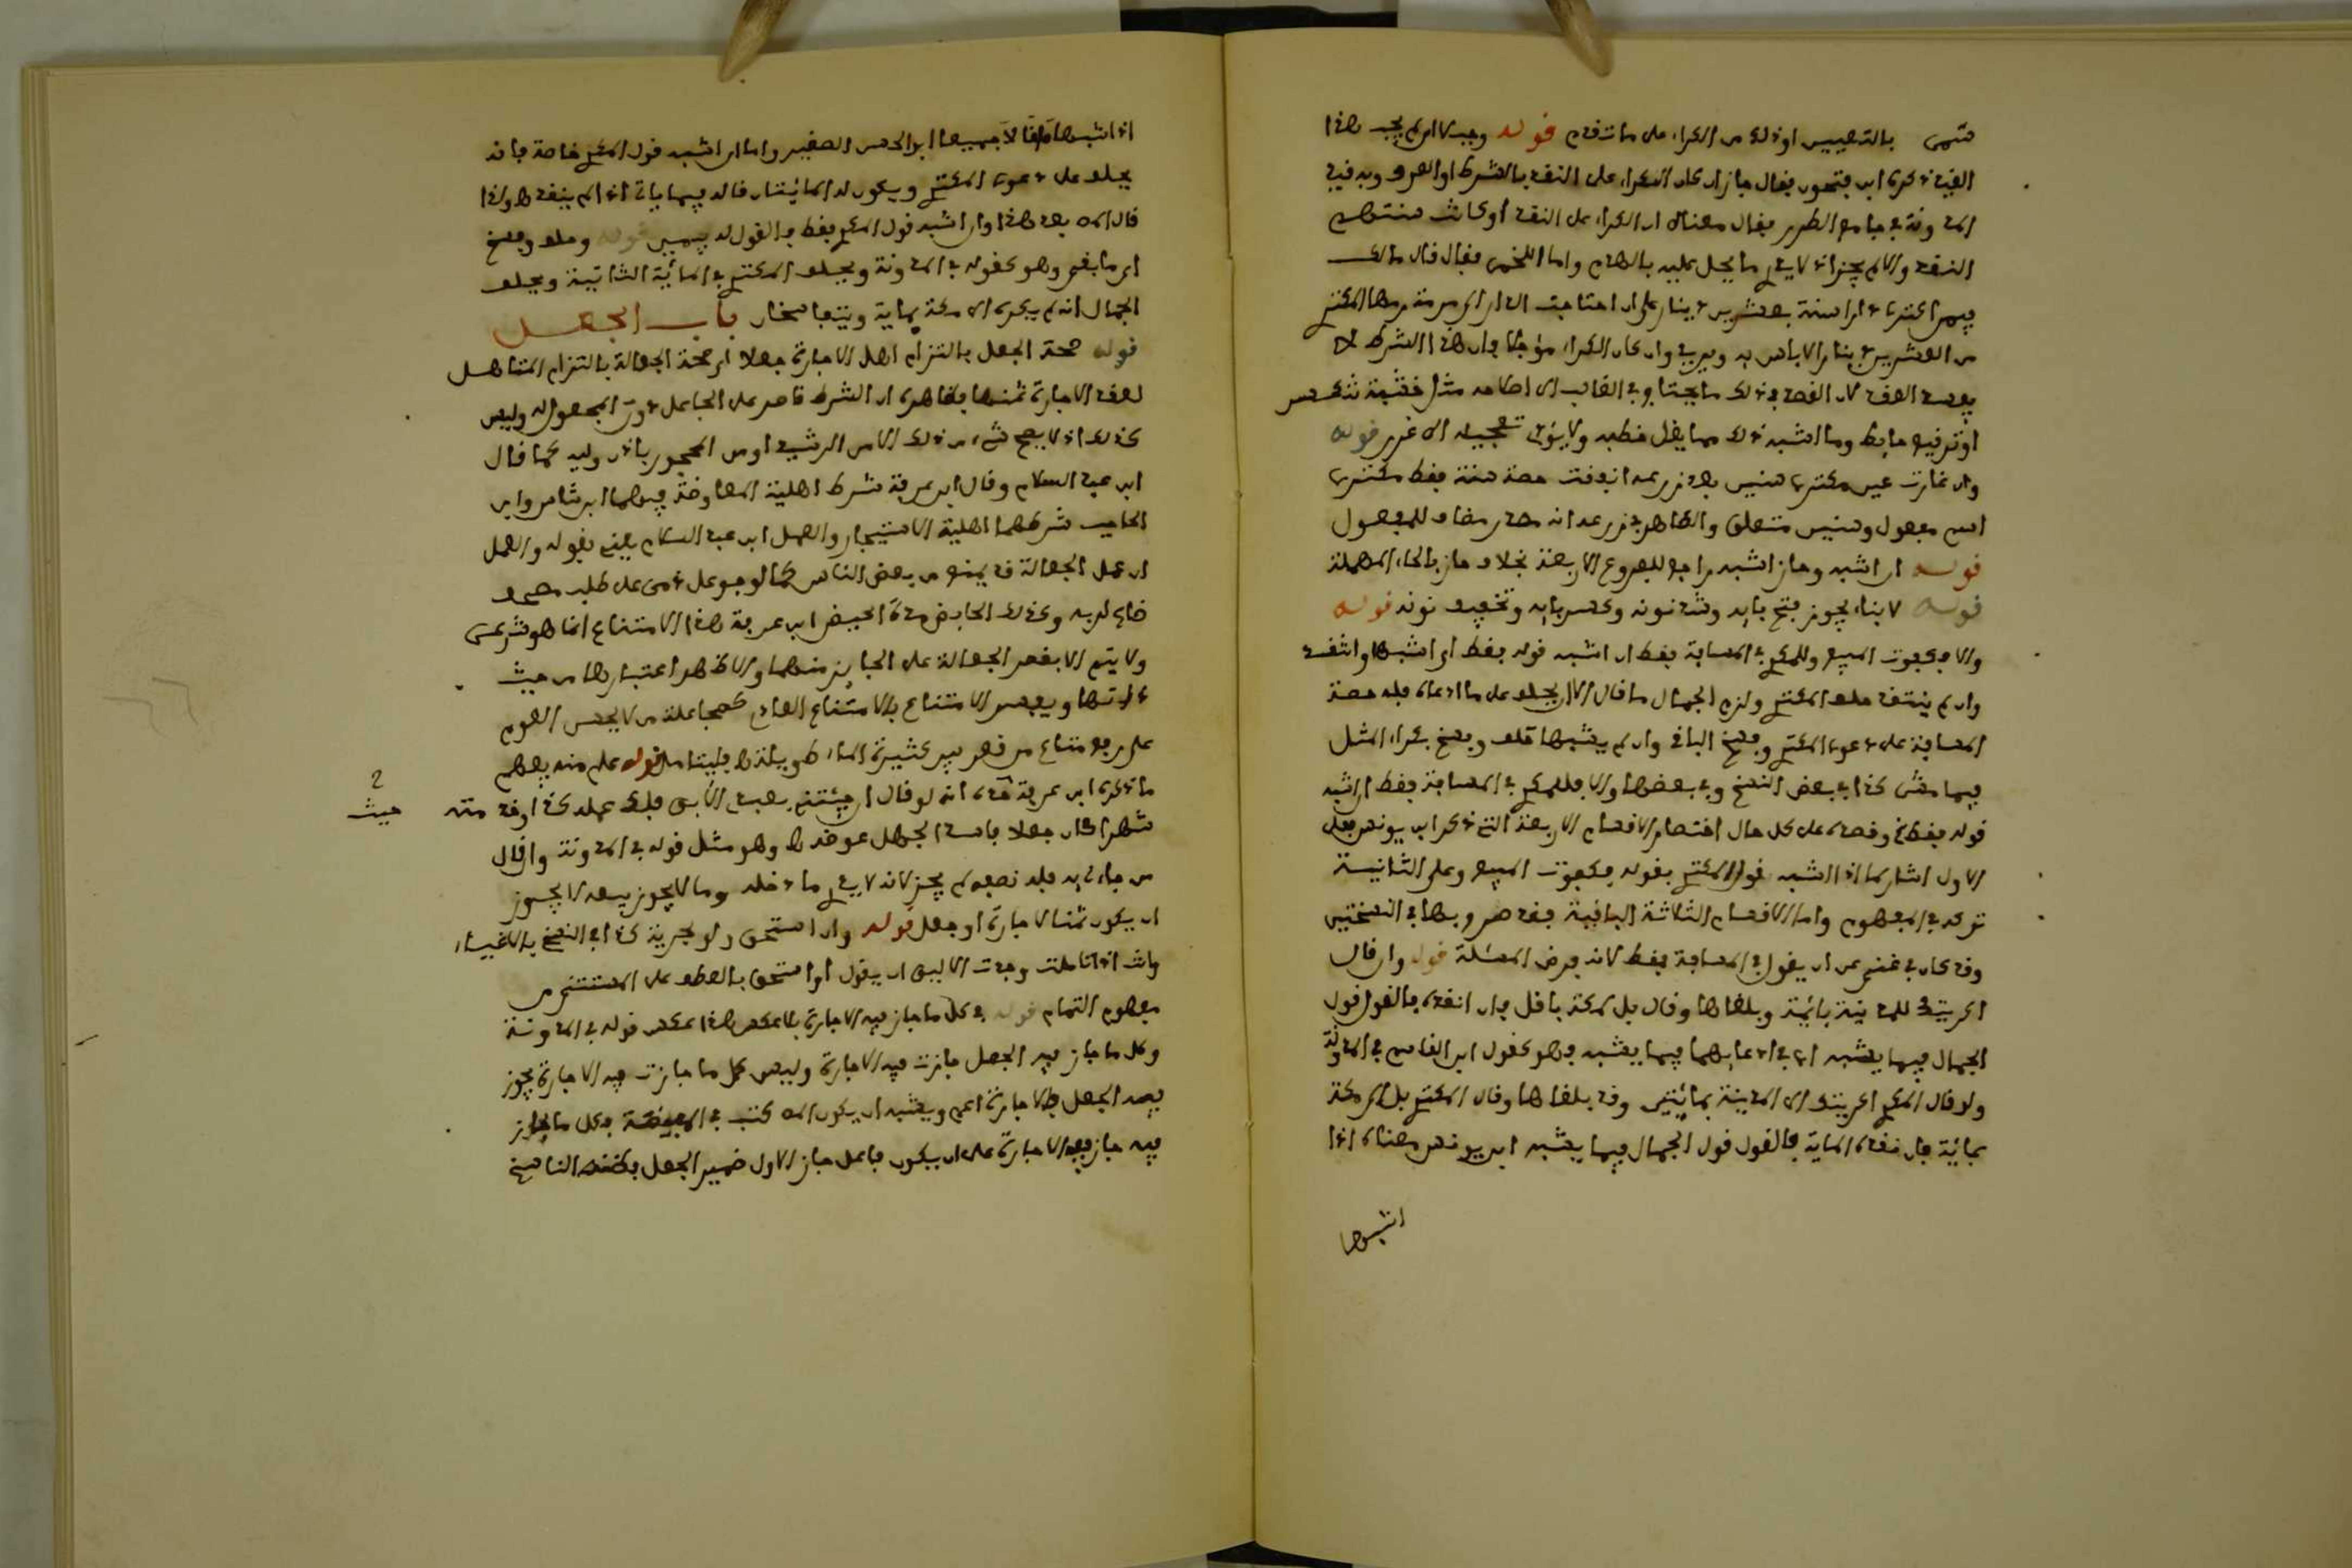 بالتعيين او ذلك من الكراء على ما تقدم قوله وجيبة ان لم يجب هذا
القيد ذكره ابن فتحون فقال جاز ان كان الكراء على النقد بالشرط او العرف وبه قيد
المدونة في جامع الطرر فقال معناه ان الكراء على النقد او كانت سنتهم
النقد والا لم يجز اذ لا يدري ما يحل عليه بالهدم واما اللخمي فقال قال مالك
فيمن اكترى دارا سنة بعشرين دينارا على ان احتاجت الدار الى مرمة رمها المكتري
من العشرين دينارا لا باس به ويريد وان كان الكراء مؤجلا وان هذا الشرط لا
يفسد العقد لان القصد في ذلك ما يحتاج في الغالب الى اصلاحه مثل خشبة تنكسر
او ترقيع حايط وما اشبه ذلك مما يقل خطبه ولا يؤدي تعجيله الى غرر قوله
وان غارت عين مكتري سنين بعد زرعه انفقت حصة سنة فقط مكتري
اسم مفعول وسنين متعلق والظاهر في زرعه انه مصدر مضاف للمفعول
قوله ان اشبه وحاز اشبه راجع للفروع الاربعة بخلاف حاز بالحاء المهملة
قوله لا بناء يجوز فتح بايه وشد نونه وكسر بايه وتخفيف نونه قوله
والا فكفوت المبيع وللمكري في المسافة فقط ان اشبه قوله فقط او اشبها وانتقد
وان لم ينتقد حلف المكتري ولزم الجمال ما قال الا ان يحلف على ما ادعاه فله حصة
المسافة على دعوى المكتري وفسخ الباقي وان لم يشبها حلفا وفسخ بكراء المثل
فيما مشى كذا في بعض النسخ وفي بعضها والا فللمكري في المسافة فقط ان اشبه
قوله فقط وقصده على كل حال اختصار الاقسام الاربعة التي ذكر ابن يونس فعلى
الاول اشار لما اذا اشبه قول المكتري بقوله فكفوت المبيع وعلى الثانية
تركه في المفهوم واما الاقسام الثلاثة الباقية فقد صرح بها في النسختين
وقد كان في غنى عن ان يقول في المسافة فقط لانه فرض المسئلة قوله وان قال
اكريتك للمدينة بمائة وبلغاها وقال بل لمكة باقل فان انقده فالقول قول
الجمال فيما يشبه اي في ادعايهما فيما يشبه فهو كقول ابن القاسم في المدونة
ولو قال المكري اكريتك الى المدينة بمائتين وقد بلغاها وقال المكتري بل الى مكة
بمائة فان نقده المائة فالقول قول الجمال فيما يشبه ابن يونس معناه اذا
اشبها
اذا اشبها ما قالا جميعا ابو الحسن الصغير واما ان اشبه قول المكري خاصة فانه
يحلف على دعوى المكتري ويكون له المائتان قاله فيما ياتي اذا لم ينقده ولذا
قال اثر هذا وان اشبه قول المكري فقط فالقول له بيمين قوله وحلف وفسخ
اي ما بقي وهو كقوله في المدونة ويحلف المكتري في المائة الثانية ويحلف
الجمال انه لم يكره الى مكة بماية ويتفاسخان باب الجعل
قوله صحة الجعل بالتزام اهل الاجارة جعلا اي صحة الجعالة بالتزام المتاهل
لعقد الاجارة ثمنها فظاهره ان الشرط قاصر على الجاعل دون المجعول له وليس
كذلك اذ لا يصح شيء من ذلك الا من الرشيد او من المحجور باذن وليه كما قال
ابن عبد السلام وقال ابن عرفة شرط اهلية المعاوضة فيهما ابن شاس وابن
الحاجب شرطهما اهلية الاستيجار والعمل ابن عبد السلام يعني بقوله والعمل
ان عمل الجعالة قد يمنع من بعض الناس كما لو جوعل ذمي على طلب مصحف
ضاع لربه وكذلك الحايض مدة الحيض ابن عرفة هذا الامتناع انما هو شرعي
ولا يتم الا بقصر الجعالة على الجايز منهما والاظهر اعتبارها من حيث
ذاتها ويفسر الامتناع بالامتناع العادي كمجاعلة من لا يحسن العوم
على رفع متاع من قعر بير كثيرة الماء طويلته فليتامل قوله علم منه يفهم
ما ذكره ابن عرفة انه لو قال ان جئتني بعبدي الآبق فلك عمله كذا او خدمته حيث
شهرا كان جعلا فاسدا لجهل عوضه وهو مثل قوله في المدونة وان قال
من جاءني به فله نصفه لم يجز لانه لا يدري ما دخله وما لا يجوز بيعه لا يجوز
ان يكون ثمنا لاجارة او جعل قوله وان استحق ولو بحرية كذا في النسخ بالاغياء
وانت اذا تاملت وجدت الاليق ان يقول او استحق بالعطف على المستثنى من
مفهوم التمام قوله في كل ما جاز فيه الاجارة بلا عكس هذا عكس قوله في المدونة
وكل ما جاز فيه الجعل جازت فيه الاجارة وليس كل ما جازت فيه الاجارة يجوز
فيه الجعل فالاجارة اعم ويشبه ان يكون كتب في المبيضة فكل ما جاز
فيه جاز فيه الاجارة على ان يكون فاعل جاز الاول ضمير الجعل فظنه الناسخ